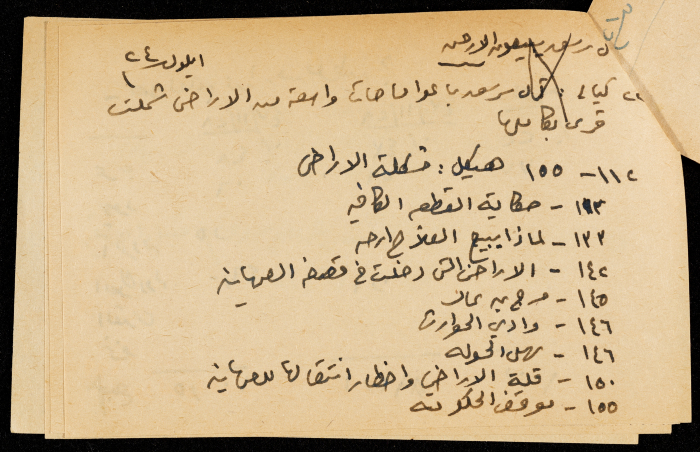 ال سرسعد يبيعون الارض
ايلول ٢٤
٢٢ كيالي : آل سرسعد باعوا مساحات واسعة من الاراضي شملت
قرى بكاملها
١١٢ - ١٥٥ هيكل : مشكلة الاراضي
١٣٣ - حكاية القطعة الكافية
١٣٣ - لماذا يبيع الفلاح ارضه
١٤٢ - الاراضي التي دخلت في قبضة الصهاينة
١٤٥ - مرج بن عامر
١٤٦ - وادي الحوارث
١٤٦ - سهل الحولة
١٥٠ - قلة الاراضي واخطار انتقالها للصهاينة
١٥٥ - موقف الحكومة